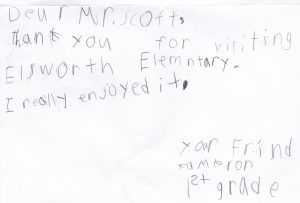 Deur Mr.scott,
thank you for visiting
Elsworth Elemntary.
I really enjoyed it,
your Frind
Kambron
1st grade